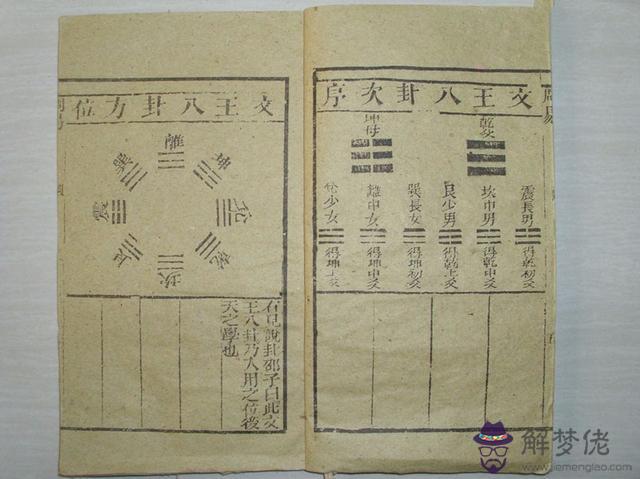 周易
文王八卦次序
乾父
坤母
震長男
得乾初爻
坎中男
得乾中爻
艮少男
得乾上爻
巽長女
得坤初爻
離中女
得坤中爻
兌少女
得坤上爻
文王八卦方位
離
坤
兌
乾
坎
艮
震
巽
右見說卦邵子曰此文
王八卦乃入用之位後
天之學也
解梦佬
www.jiemenglao.com